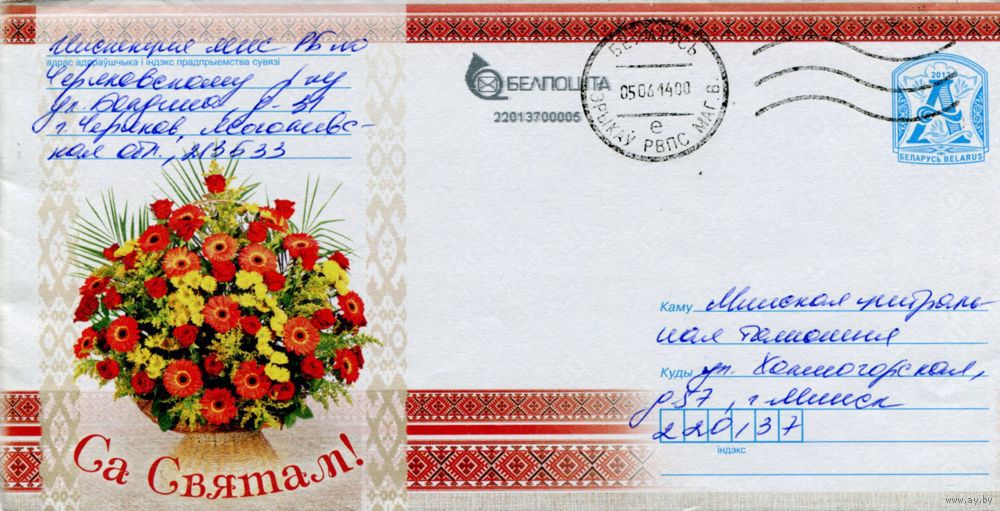 Инспекция МНС РБ по
адрас адпраўшчыка і індэкс прадпрыемства сувязі
Чериковскому р-ну
ул. д-51
г. Чериков, Могилевс-
кая обл., 213533
БЕЛПОШТА
22013700005
БЕЛАРУСЬ
05 04 14 00
е
РВПС МАГ. В.
2013
А
БЕЛАРУСЬ BELARUS
Каму Минская централь-
ная таможня
Куды ул. Холмогорская,
д 57, г. Минск
220137
індэкс
Са Святам!
www.ay.by